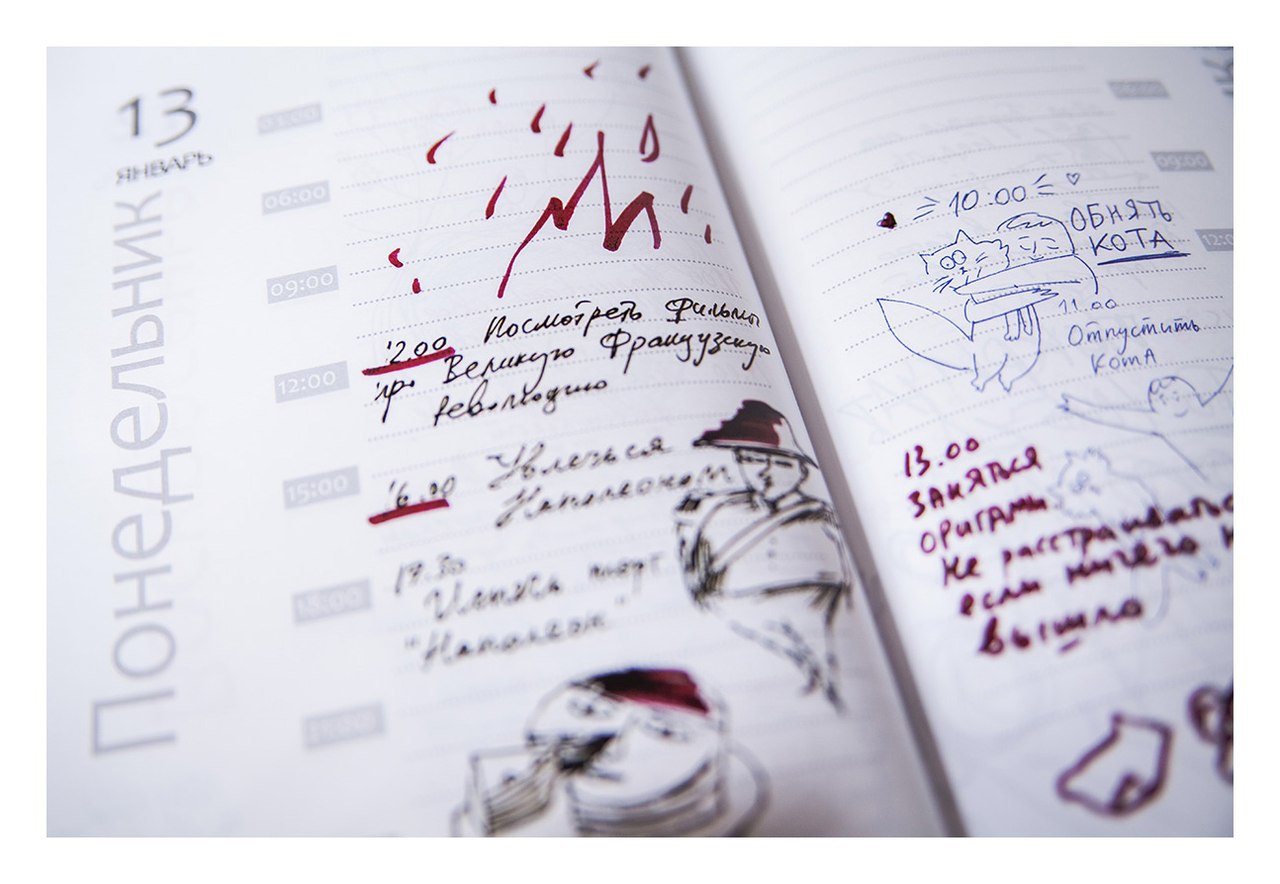 13
ЯНВАРЬ
Понедельник
03:00
06:00
09:00
12:00
15:00
18:00
21:00
12.00 Посмотреть фильмы
пр Великую Французскую
революцию
16.00 Увлечься
Наполеоном
19.30
Испечь торт
"Наполеон"
06:00
09:00
12:0
10:00
ОБНЯТЬ
КОТА
11.00
Отпустить
КотА
13.00
ЗАНЯТЬСЯ
ОРИГАМИ
Не расстраиватьс
если ничего н
вышло